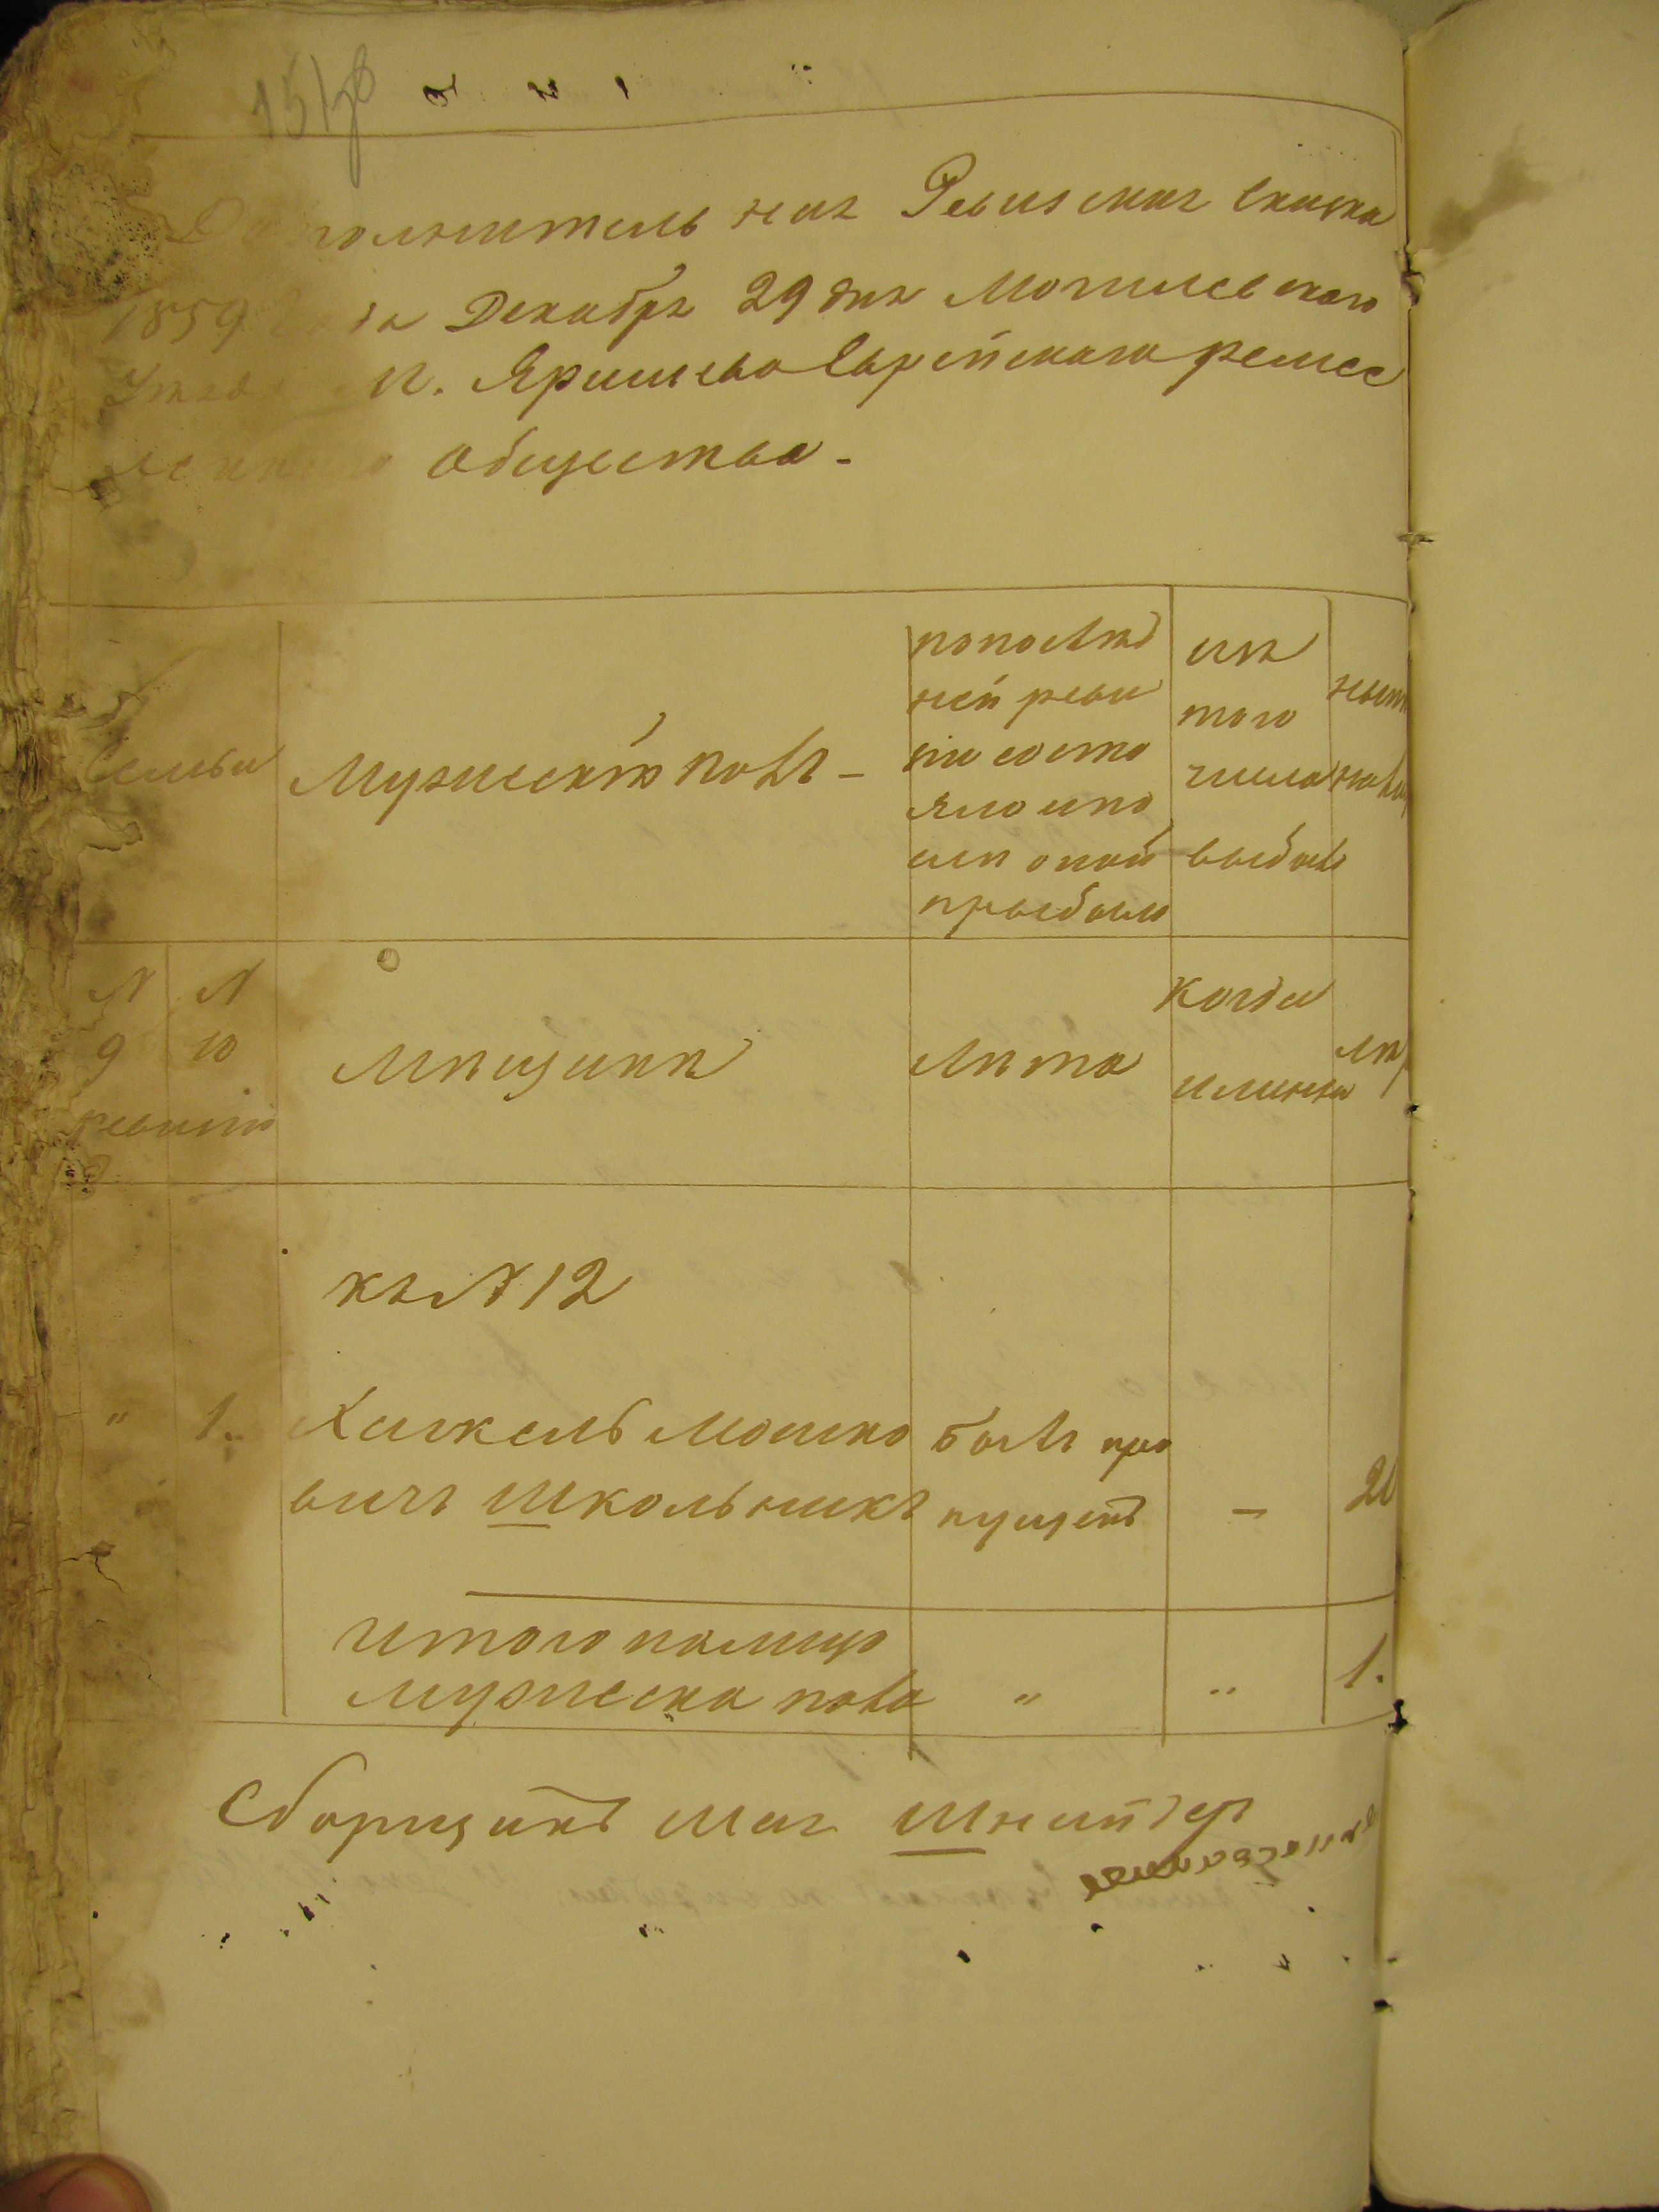 Дополнительная Ревизская Сказка
1859 Года Декабря 29 дня Могилевскаго
Уезда М. Яришева Еврейскаго ремес
леннаго Общества.
Семьи
Мужескій полъ
по послед
ней реви
зіи состо
яло и по
сле оной
прибыло
изъ
того
числа
выбыло
ныне
на лицо
N N
9 10
ревизіи
Мещане
Лета
Когда
именно
ле
къ N 12
" 1.
Хаскель Мошко
вичъ Школьникъ
былъ про
пущенъ
–
20
Итого на лицо
мужеска пола
" " 1.
Сборщикъ Шнайдер